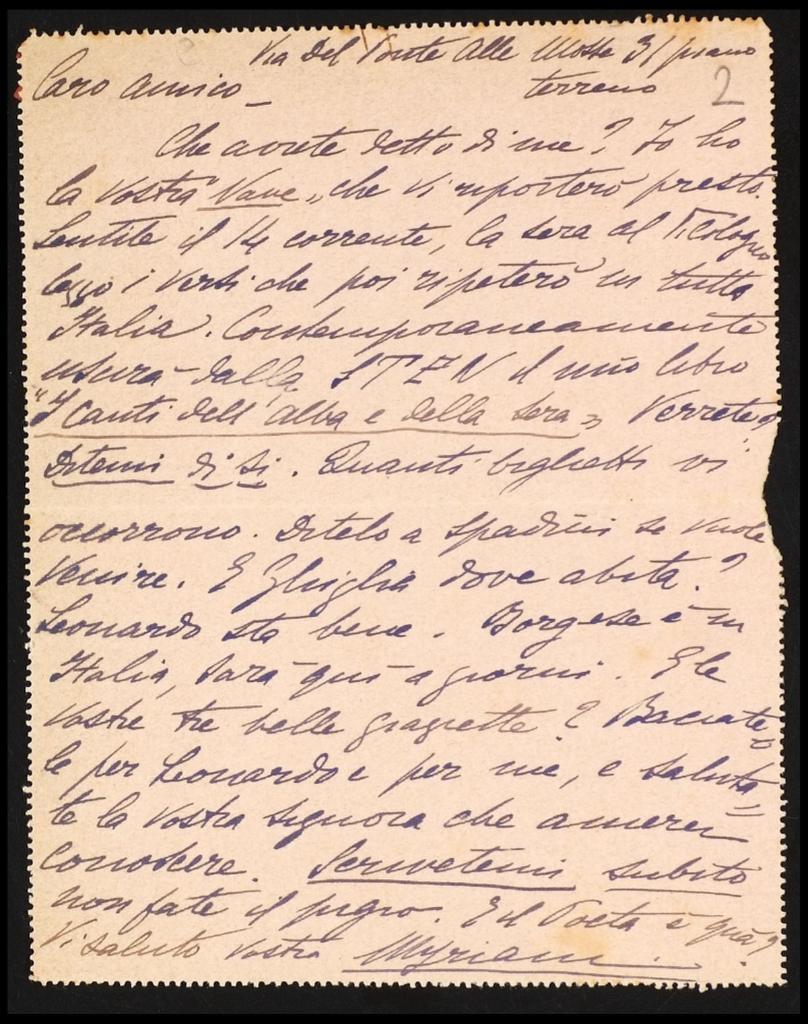 Via del Ponte alle Mosse 31 piano
Caro amico_ terreno 2
Che avete detto di me? Io ho
la vostra "Nave", che vi riporterò presto.
Sentite il 14 corrente, la sera al
leggo i versi che poi ripeterò in tutta
Italia. Contemporaneamente
uscirà dalla STEN il mio libro
"I canti dell'alba e della sera" Verrete?
Ditemi di sì. Quanti biglietti vi
occorrono. Ditelo a Spadini se vuole
venire. E Ghiglia dove abita?
Leonardo sta bene. Borgese è in
Italia, sarà qui a giorni. E le
vostre tre belle ? Baciate=
le per Leonardo e per me, e saluta=
te la vostra signora che amerei
conoscere. Scrivetemi subito
non fate il pigro. Ed il Poeta è qua?
Vi saluto vostra Myriam.